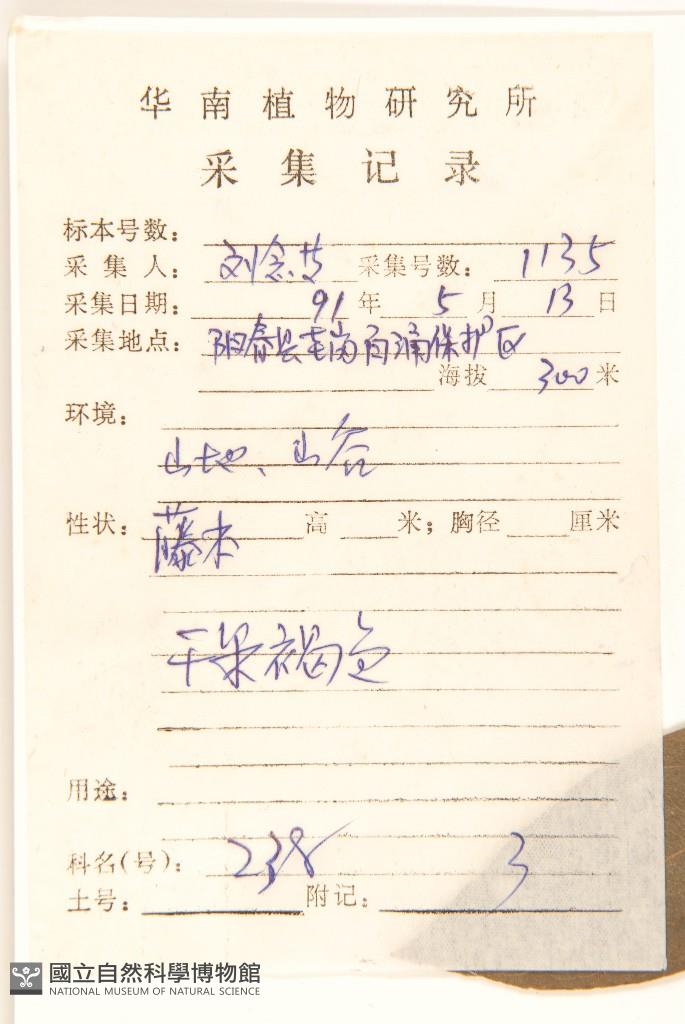 华南植物研究所
采集记录
标本号数：
采集人：刘念 采集号数：1135
采集日期：91年5月13日
采集地点：阳春县 岗 涌保护区
海拔 300 米
环境：
山地、山谷
性状：藤本 高 米；胸径 厘米
干果褐色
用途：
科名(号)：238 3
土号： 附记：
國立自然科學博物館
NATIONAL MUSEUM OF NATURAL SCIENCE